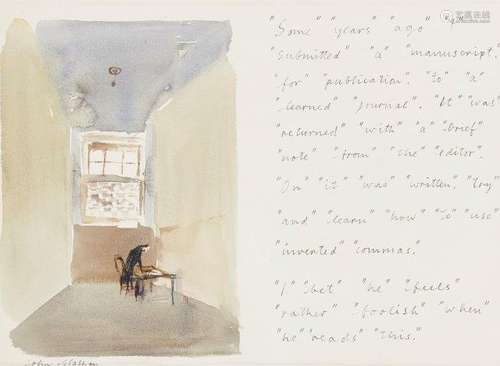 "Some" "years" "ago" "I"
"submitted" "a" "manuscript"
"for" "publication". "to" "a"
"learned" "journal". "It" "was"
"returned" "with" "a" "brief"
"note" "from" "the" "editor".
"On" "it" "was" "written," "try"
"and" "learn" "how" "to" "use"
"invented" "commas."
"I" "bet" "he" "feels"
"rather" "foolish" "when"
"he" "reads" "this."
John Glashan